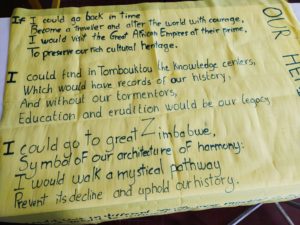 If I could go back in time
Become a traveler and alter the world with courage,
I would visit the Great African Empires at their prime,
To preserve our rich cultural heritage.
I could find in Tombouktou the knowledge centers,
Which would have records of our history,
And without our tormentors,
Education and erudition would be our legacy
I could go to great Zimbabwe,
Symbol of our architecture of harmony:
I would walk a mystical pathway
Prevent its decline and uphold our history.
OUR HE